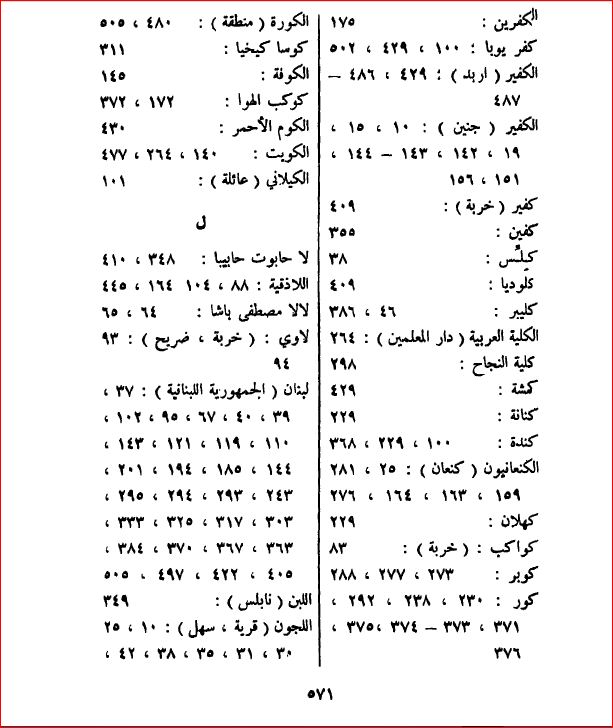 الكفرين : ١٧٥
كفر يوبا : ١٠٠ ، ٤٢٩ ، ٥٠٢
الكفير ( اربد ) : ٤٢٩ ، ٤٨٦ –
٤٨٧
الكفير ( جنين ) : ١٠ ، ١٥ ،
١٩ ، ١٤٢ ، ١٤٣ – ١٤٤ ،
١٥١ ، ١٥٦
كفير ( خربة ) : ٤٠٩
كفين : ٣٥٥
كيلّس : ٣٨
كلوديا : ٤٠٩
كليبر : ٤٦ ، ٣٨٦
الكلية العربية ( دار المعلمين ) : ٢٦٤
كلية النجاح : ٢٩٨
كمشة : ٤٢٩
كنانة : ٢٢٩
كندة : ١٠٠ ، ٢٢٩ ، ٣٦٨
الكنعانيون ( كنعان ) : ٢٥ ، ٢٨١
١٥٩ ، ١٦٣ ، ١٦٤ ، ٢٧٦
كهلان : ٢٢٩
كواكب : ( خربة ) : ٨٣
كوبر : ٢٧٣ ، ٢٧٧ ، ٢٨٨
كور : ٢٣٠ ، ٢٣٨ ، ٢٩٢ ،
٣٧١ ، ٣٧٣ – ٣٧٤ ،٣٧٥ ،
٣٧٦
الكورة ( منطقة ) : ٤٨٠ ، ٥٠٥
كوسا كيخيا : ٣١١
الكوفة : ١٤٥
كوكب الهوا : ١٧٢ ، ٣٧٢
الكوم الأحمر : ٤٣٠
الكويت : ١٤٠ ، ٢٦٤ ، ٤٧٧
الكيلاني ( عائلة ) : ١٠١
ل
لا حابوت حابيبا : ٣٤٨ ، ٤١٠
اللاذقية : ٨٨ ، ١٠٤ ١٦٤ ، ٤٤٥
لالا مصطفى باشا : ٦٤ ، ٦٥
لاوي : ( خربة ، ضريح ) : ٩٣
٩٤
لبنان ( الجمهورية اللبنانية ) : ٣٧ ،
٣٩ ، ٤٠ ، ٦٧ ، ٩٥ ، ١٠٢ ،
١١٠ ، ١١٩ ، ١٢١ ، ١٤٣ ،
١٤٤ ، ١٨٥ ، ١٩٤ ، ٢٠١ ،
٢٤٣ ، ٢٩٣ ، ٢٩٤ ، ٢٩٥ ،
٣٠٣ ، ٣١٧ ، ٣٢٥ ، ٣٣٣ ،
٣٦٣ ، ٣٦٧ ، ٣٧٠ ، ٣٨٤ ،
٤٠٥ ، ٤٢٢ ، ٤٩٧ ، ٥٠٥
اللبن ( نابلس ) : ٣٤٩
اللجون ( قرية ، سهل ) : ١٠ ، ٢٥
٣٠ ، ٣١ ، ٣٥ ، ٣٨ ، ٤٢ ،
٥٧١